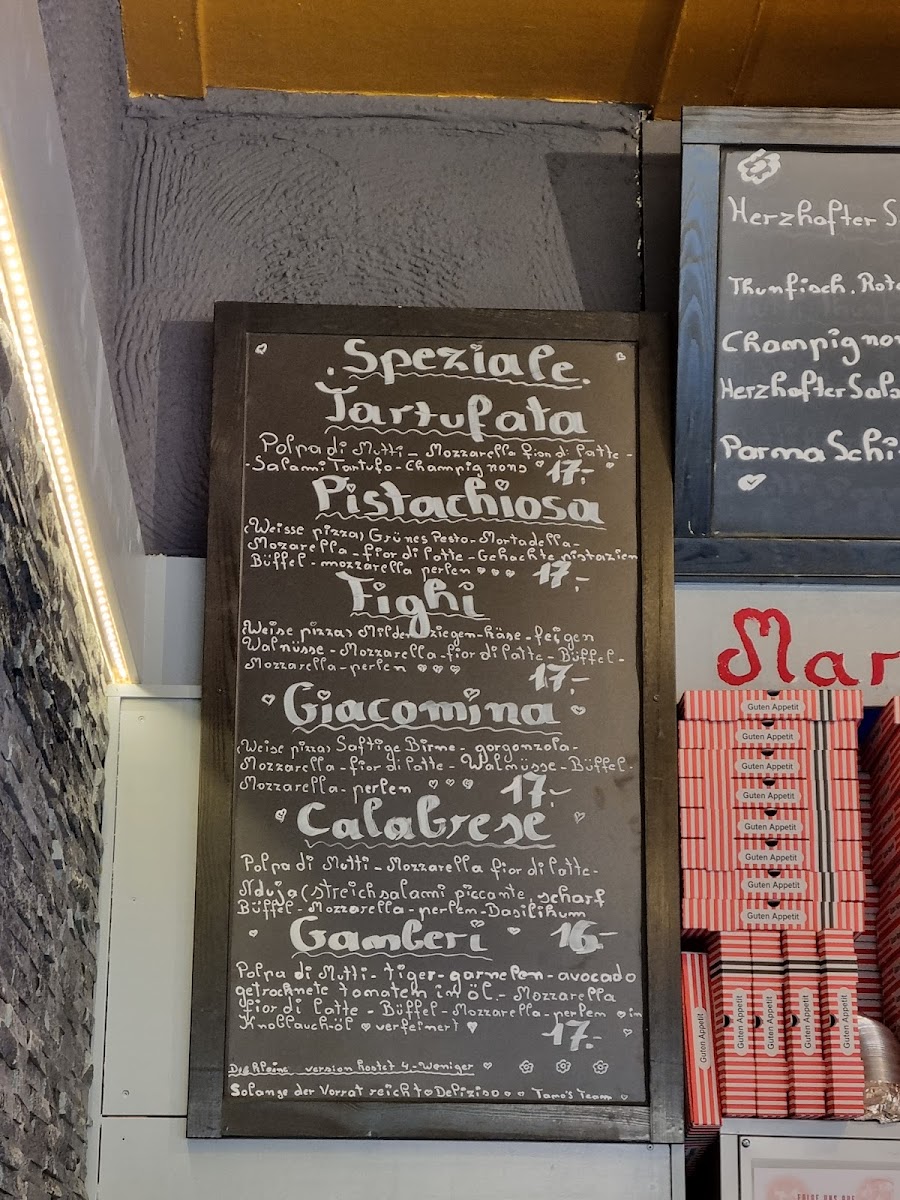 .Speziale.
Tartufata
Polpa di Mutti - Mozzarella fior di latte -
- Salami Tartufo - Champignons 17,-
Pistachiosa
(Weisse pizza) Grünes Pesto - Mortadella -
Mozarella - fior di latte - Gehackte pistazien
Büffel - mozzarella perlen 17,-
Fighi
(Weise pizza) Milder ziegen-käse - feigen
Walnüsse - Mozarella - fior di latte - Büffel -
Mozzarella - perlen 17,-
Giacomina
(Weise pizza) Saftige Birne - gorgonzola -
Mozzarella - fior di latte - Walnüsse - Büffel -
Mozzarella - perlen 17,-
Calabrese
Polpa di Mutti - Mozzarella fior di latte -
Nduja (streichsalami piccante, scharf
Büffel - Mozzarella - perlen - Basilikum
Gamberi 16-
Polpa di Mutti - tiger - garnelen - avocado
getrocknete tomaten im öl - Mozzarella
fior di latte - Büffel - Mozzarella - perlen in
Knoblauch-öl verfeinert
17.-
Die Kleine version kostet 4,- Weniger
Solange der Vorrat reicht Delizioso Tamo's Team
Herzhafter S
Thunfisch. Rot
Champignon
Herzhafter Sala
Parma Schi
Mar
Guten Appetit
Guten Appetit
Guten Appetit
Guten Appetit
Guten Appetit
Guten Appetit
Guten Appetit
Guten Appetit
Guten Appetit
Guten Appetit
Guten Appetit
Guten Appetit
Guten Appetit